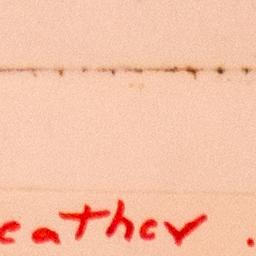 eather .